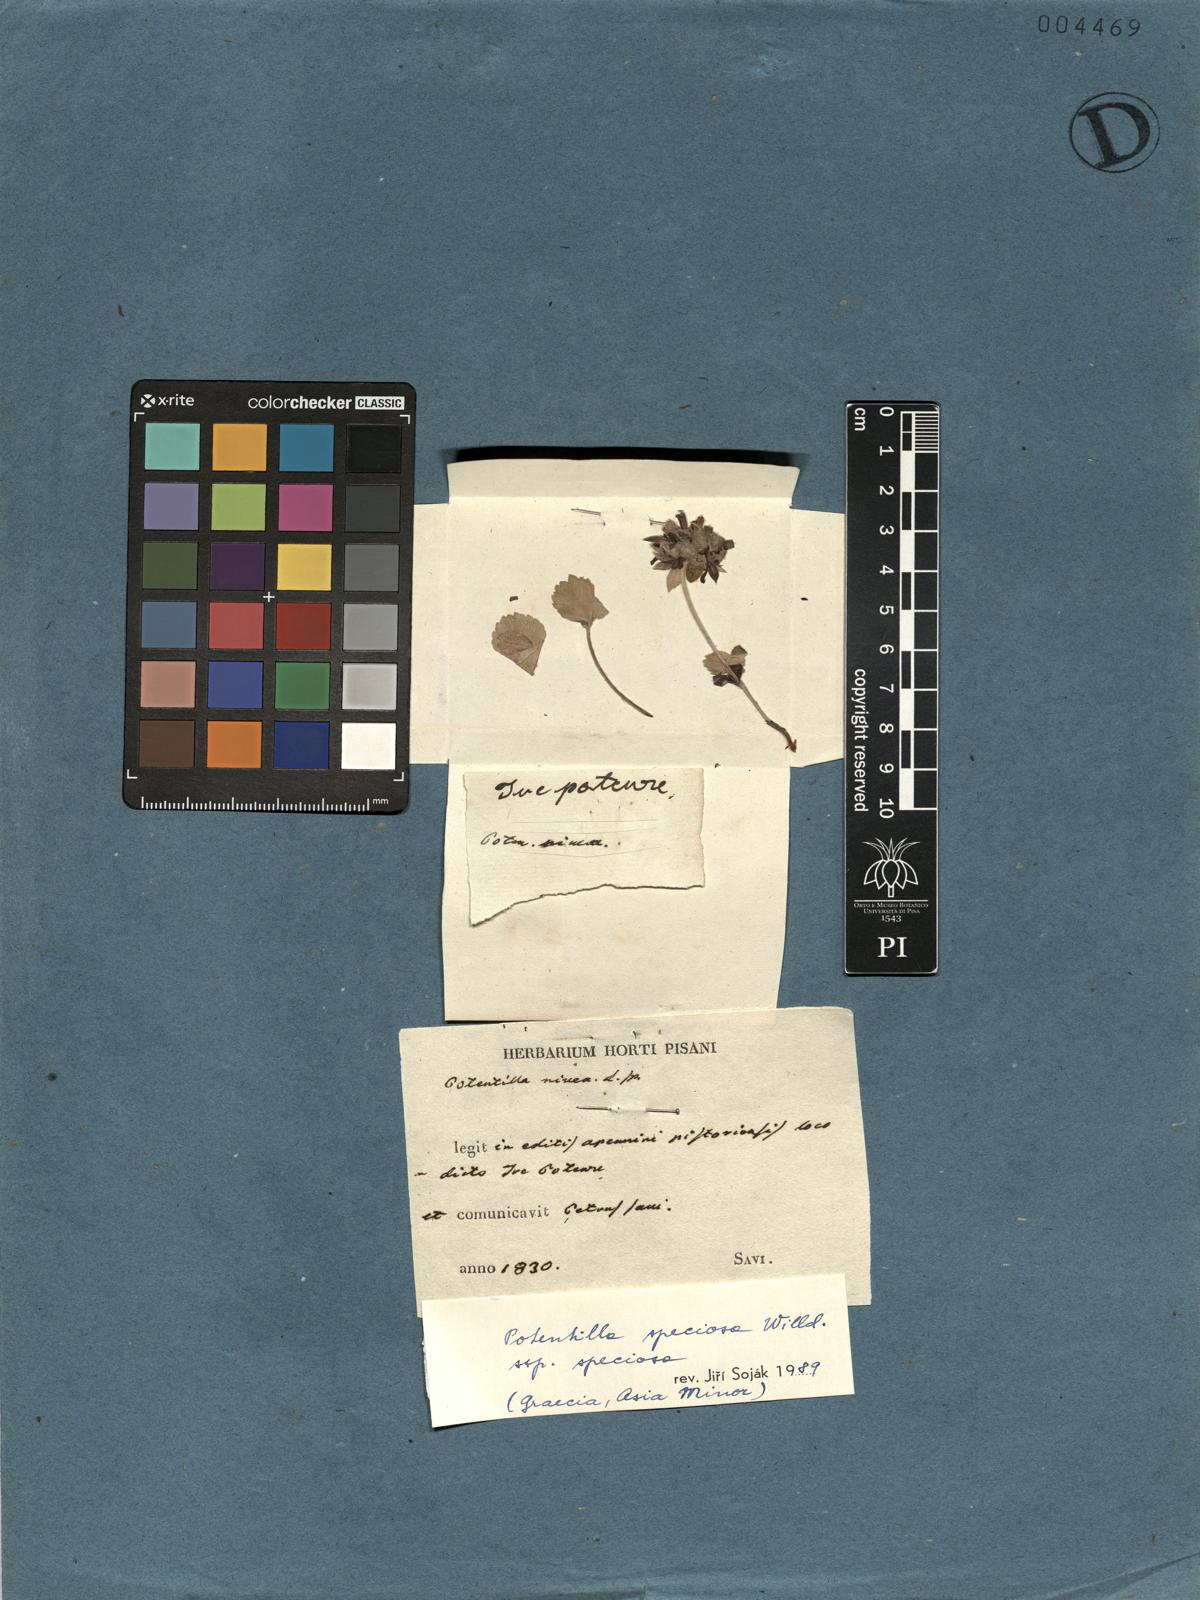 004469
D
x-rite
colorchecker CLASSIC
mm
0 cm
1
2
3
4
5
6
7
8
9
10
copyright reserved
ORTO E MUSEO BOTANICO
UNIVERSITÀ DI PISA
1543
PI
Tre potenze,
Poten. nivea.
HERBARIUM HORTI PISANI
Potentilla nivea. L. sp.
legit in editis apennini pistoriensis loco
- dicto Tre Potenze
et comunicavit Petrus Savi.
anno 1830.
SAVI.
Potentilla speciosa Willd.
ssp. speciosa
rev. Jiří Soják 1989
(Graecia, Asia Minor)